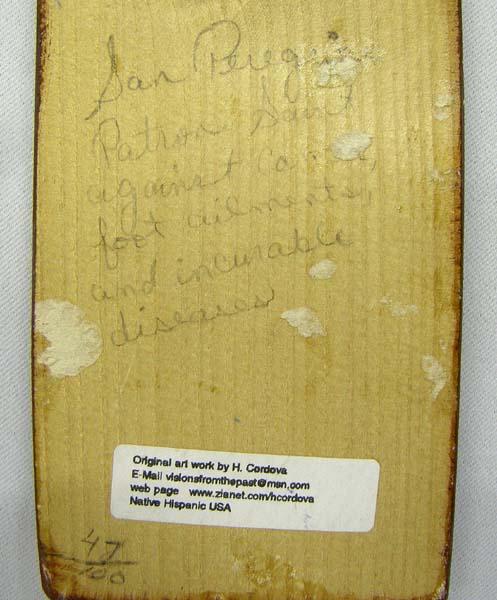 San Peregrine
Patron Saint
against Cancer,
foot ailments,
and incurable
diseases
Original art work by H. Cordova
E-Mail visionsfromthepast@msn.com
web page www.zianet.com/hcordova
Native Hispanic USA
47
100